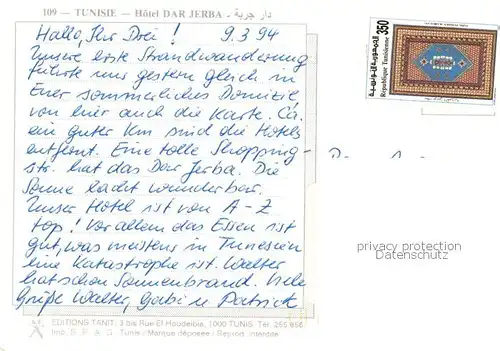 109 — TUNISIE — Hôtel DAR JERBA - دار جربة
Hallo, Ihr Drei ! 9.3.94
Unsere erste Strandwanderung
führte uns gestern gleich in
Euer sommerliches Domizil
von hier auch die Karte. Ca.
ein guter Km sind die Hotels
entfernt. Eine tolle Shopping-
str. hat das Dar Jerba. Die
Sonne lacht wunderbar.
Unser Hotel ist von A - Z
top! Vor allem das Essen ist
gut, was meistens in Tunesien
eine Katastrophe ist. Walter
hat schon Sonnenbrand. Viele
Grüße Walter, Gabi u. Patrick
350
République Tunisienne
privacy protection
Datenschutz
EDITIONS TANIT, 3 bis Rue El Houdeibia, 1000 TUNIS. Tél. 255.856
Imp. S. P. A. G. Tunis / Marque déposée / Reprod. interdite